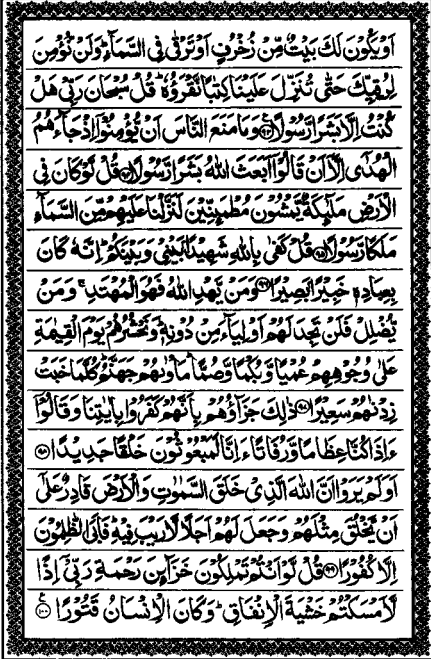 اَوْ يَكُوْنَ لَكَ بَيْتٌ مِّنْ زُخْرُفٍ اَوْ تَرْقٰى فِى السَّمَآءِ ؕ وَلَنْ نُّؤْمِنَ
لِرُقِيِّكَ حَتّٰى تُنَزِّلَ عَلَيْنَا كِتٰبًا نَّقْرَؤُهٗ ؕ قُلْ سُبْحَانَ رَبِّىْ هَلْ
كُنْتُ اِلَّا بَشَرًا رَّسُوْلًا ﴿۹۳﴾ وَمَا مَنَعَ النَّاسَ اَنْ يُّؤْمِنُوْۤا اِذْ جَآءَهُمُ
الْهُدٰۤى اِلَّاۤ اَنْ قَالُوْۤا اَبَعَثَ اللّٰهُ بَشَرًا رَّسُوْلًا ﴿۹۴﴾ قُلْ لَّوْ كَانَ فِى
الْاَرْضِ مَلٰٓئِكَةٌ يَّمْشُوْنَ مُطْمَئِنِّيْنَ لَنَزَّلْنَا عَلَيْهِمْ مِّنَ السَّمَآءِ
مَلَكًا رَّسُوْلًا ﴿۹۵﴾ قُلْ كَفٰى بِاللّٰهِ شَهِيْدًۢا بَيْنِىْ وَبَيْنَكُمْ ؕ اِنَّهٗ كَانَ
بِعِبَادِهٖ خَبِيْرًۢا بَصِيْرًا ﴿۹۶﴾ وَمَنْ يَّهْدِ اللّٰهُ فَهُوَ الْمُهْتَدِ ۚ وَمَنْ
يُّضْلِلْ فَلَنْ تَجِدَ لَهُمْ اَوْلِيَآءَ مِنْ دُوْنِهٖ ؕ وَنَحْشُرُهُمْ يَوْمَ الْقِيٰمَةِ
عَلٰى وُجُوْهِهِمْ عُمْيًا وَّبُكْمًا وَّصُمًّا ؕ مَاْوٰىهُمْ جَهَنَّمُ ؕ كُلَّمَا خَبَتْ
زِدْنٰهُمْ سَعِيْرًا ﴿۹۷﴾ ذٰلِكَ جَزَآؤُهُمْ بِاَنَّهُمْ كَفَرُوْا بِاٰيٰتِنَا وَقَالُوْۤا
ءَاِذَا كُنَّا عِظَامًا وَّرُفَاتًا ءَاِنَّا لَمَبْعُوْثُوْنَ خَلْقًا جَدِيْدًا ﴿۹۸﴾
اَوَلَمْ يَرَوْا اَنَّ اللّٰهَ الَّذِىْ خَلَقَ السَّمٰوٰتِ وَالْاَرْضَ قَادِرٌ عَلٰۤى
اَنْ يَّخْلُقَ مِثْلَهُمْ وَجَعَلَ لَهُمْ اَجَلًا لَّا رَيْبَ فِيْهِ ؕ فَاَبَى الظّٰلِمُوْنَ
اِلَّا كُفُوْرًا ﴿۹۹﴾ قُلْ لَّوْ اَنْتُمْ تَمْلِكُوْنَ خَزَآئِنَ رَحْمَةِ رَبِّىْۤ اِذًا
لَّاَمْسَكْتُمْ خَشْيَةَ الْاِنْفَاقِ ؕ وَكَانَ الْاِنْسَانُ قَتُوْرًا ﴿۱۰۰﴾